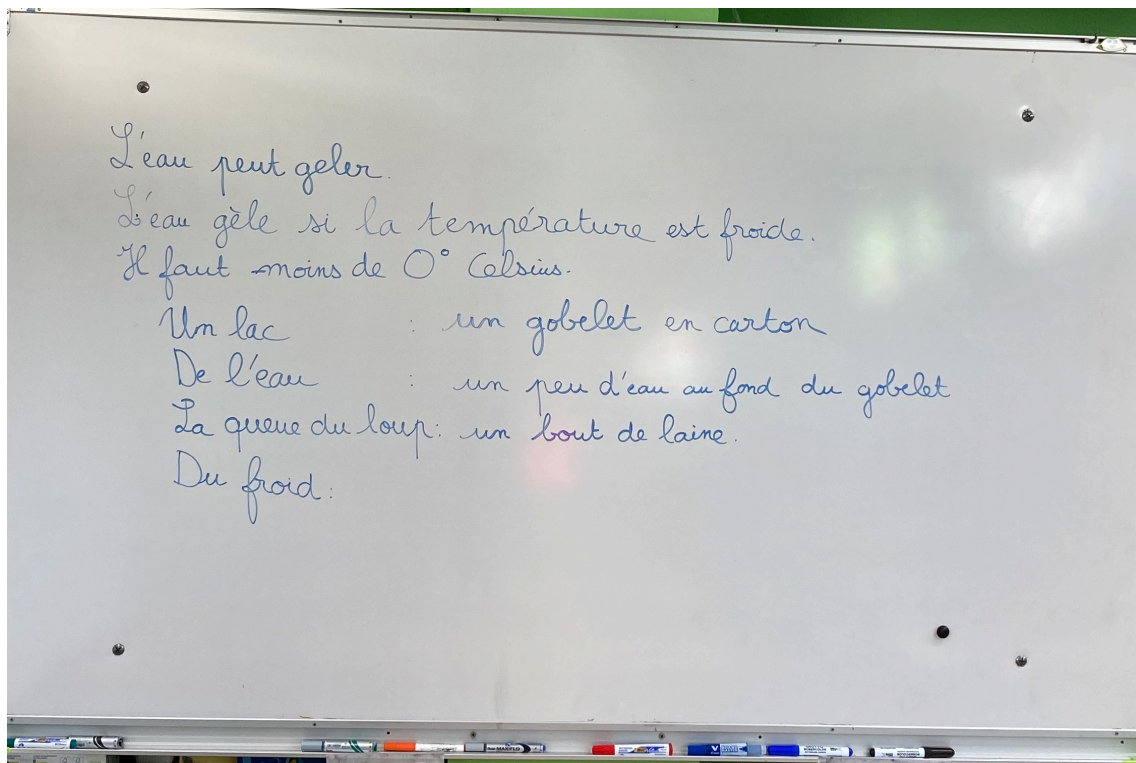 L'eau peut geler.
L'eau gèle si la température est froide.
Il faut moins de 0° Celsius.
Un lac : un gobelet en carton
De l'eau : un peu d'eau au fond du gobelet
La queue du loup : un bout de laine.
Du froid :
MAXIFLO